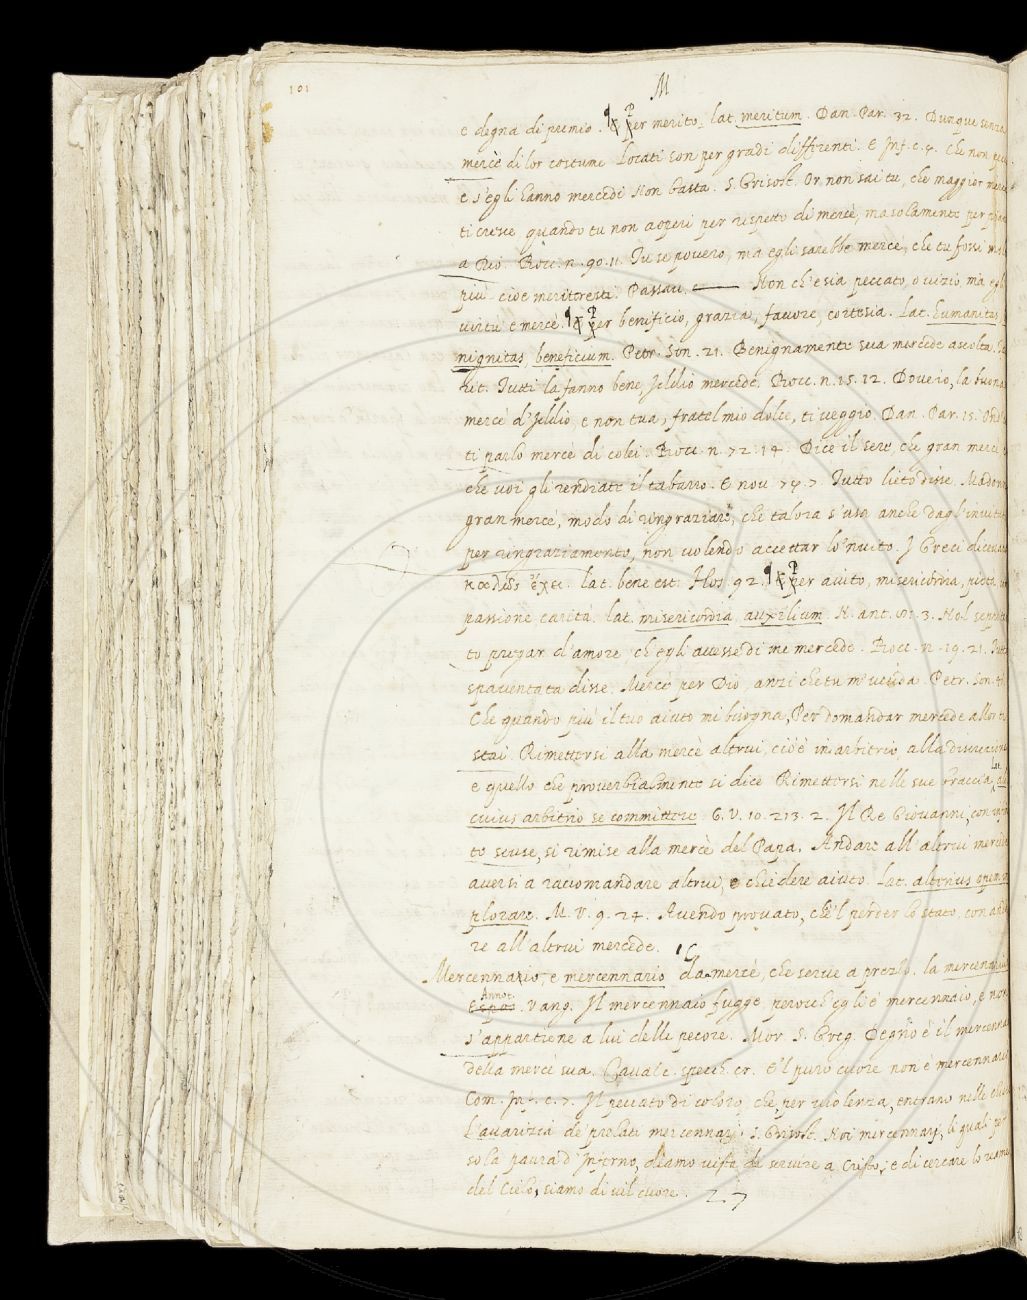 101
M
e degna di premio. ¶ Per merito. lat. meritum. Dan. Par. 32. Dunque senza
mercè di lor costume Locati son per gradi differenti. E Inf. c. 4. Che non
e s'egli hanno mercedi Non basta. S. Grisost. Or non sai tu, che maggior
ti cresce, quando tu non aoperi per rispetto di mercè, ma solamente per
a Dio. Bocc. n. 90. 11. Tu se povero, ma egli sarebbe mercè, che tu fossi
più cioè meriteresti. Passav. Non ch'e sia peccato, o vizio, ma
virtù e mercè. ¶ Per beneficio, grazia, favore, cortesia. Lat. humanitas,
nignitas, beneficium. Petr. Son. 21. Benignamente sua mercede ascolta.
rit. Tutti la fanno bene, Iddio mercede. Bocc. n. 15. 12. Dove io, la buona
mercè d'Iddio, e non tua, fratel mio dolce, ti veggio. Dan. Par. 15.
ti parlò mercè di colei. Bocc. n. 72. 14. Dice il sere, che gran mercè,
che voi gli rendiate il tabarro. E nov. Tutto lieto disse. Madonna
gran mercè, modo di ringraziare, che talora s'usa anche dagl'
per ringraziamento, non volendo accettar lo'nvito. I Greci
καλῶς ἔχει. lat. bene est. Flos. 92. ¶ Per aiuto, misericordia, pietà,
passione, carità. lat. misericordia, auxilium. N. ant. 3. Nol
to pregar d'amore, ch'egli avesse di me mercede. Bocc. n. 19. 21.
spaventata disse. Mercè per Dio, anzi che tu m'uccida. Petr. Son.
Che quando più il tuo aiuto mi bisogna, Per domandar mercede allor
stai Rimettersi alla mercè altrui, cioè in arbitrio, alla discrezione
e quello che proverbialmente si dice Rimettersi nelle sue braccia, Lat.
cuius arbitrio se committere G. V. 10. 213. 2. Il Re Giovanni, con
to scuse, si rimise alla mercè del Papa. Andare all'altrui
aversi a raccomandare altrui, e chiedere aiuto. Lat. alterius opem
plorare. M. V. 9. 24. Avendo provato, che'l perder lo stato, con
re all'altrui mercede.
Mercennaio, e mercennario da mercè, che serve a prezzo. la
Annot. Vang. Il mercennaio fugge, perocch'egli è mercennaio, e non
s'appartiene a lui delle pecore. Mor. S. Greg. Degno è il
della mercè sua. Cavalc. specch. cr. E'l puro cuore non è mercennaio
Com. Inf. c. 7. Il peccato di coloro, che, per violenza, entrano nelle
L'avarizia de' prelati mercennarj. S. Grisost. Noi mercennarj, li quali per
sola paura d'Inferno, diamo vista di servire a Cristo, e di cercare lo reame
del Cielo, siamo di vil cuore. 27